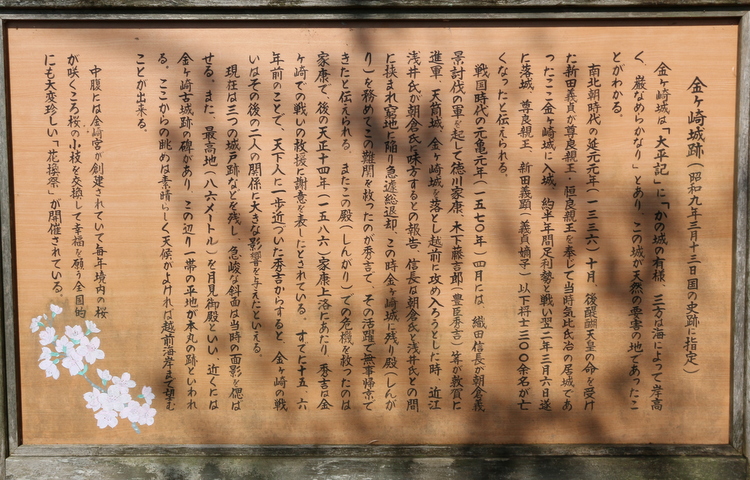 金ヶ崎城跡(昭和九年三月十三日国の史跡に指定)
金ヶ崎城は「太平記」に「かの城の有様、三方は海によって岸高
く、巌なめらかなり」とあり、この城が天然の要害の地であったこ
とがわかる。
南北朝時代の延元元年(一三三六)十月、後醍醐天皇の命を受け
た新田義貞が尊良親王・恒良親王を奉じて当時気比氏治の居城であ
ったここ金ヶ崎城に入城、約半年間足利勢と戦い翌二年三月六日遂
に落城、尊良親王、新田義顕(義貞嫡子)以下将士三〇〇余名が亡
くなったと伝えられる。
戦国時代の元亀元年(一五七〇年)四月には、織田信長が朝倉義
景討伐の軍を起して徳川家康、木下藤吉郎(豊臣秀吉)等が敦賀に
進軍、天筒城、金ヶ崎城を落とし越前に攻め入ろうとした時、近江
浅井氏が朝倉氏に味方するとの報告、信長は朝倉氏と浅井氏との間
に挟まれ窮地に陥り急遽総退却、この時金ヶ崎城に残り殿(しんが
り)を務めてこの難関を救ったのが秀吉で、その活躍で無事帰京で
きたと伝えられる。またこの殿(しんがり)での危機を救ったのは
家康で、後の天正十四年(一五八六)家康上洛にあたり、秀吉は金
ヶ崎での戦いの救援に謝意を表したとされている。すでに十五、六
年前のことで、天下人に一歩近づいた秀吉からすると、金ヶ崎の戦
いはその後の二人の関係に大きな影響を与えたといえる。
現在は三つの城戸跡などを残し、急峻な斜面は当時の面影を偲ば
せる。また、最高地(八六メートル)を月見御殿といい、近くには
金ヶ崎古城跡の碑があり、この辺り一帯の平地が本丸の跡といわれ
る。ここからの眺めは素晴らしく天候がよければ越前海岸まで望む
ことが出来る。
中腹には金崎宮が創建されていて毎年境内の桜
が咲くころ桜の小枝を交換して幸福を願う全国的
にも大変珍しい「花換祭」が開催されている。